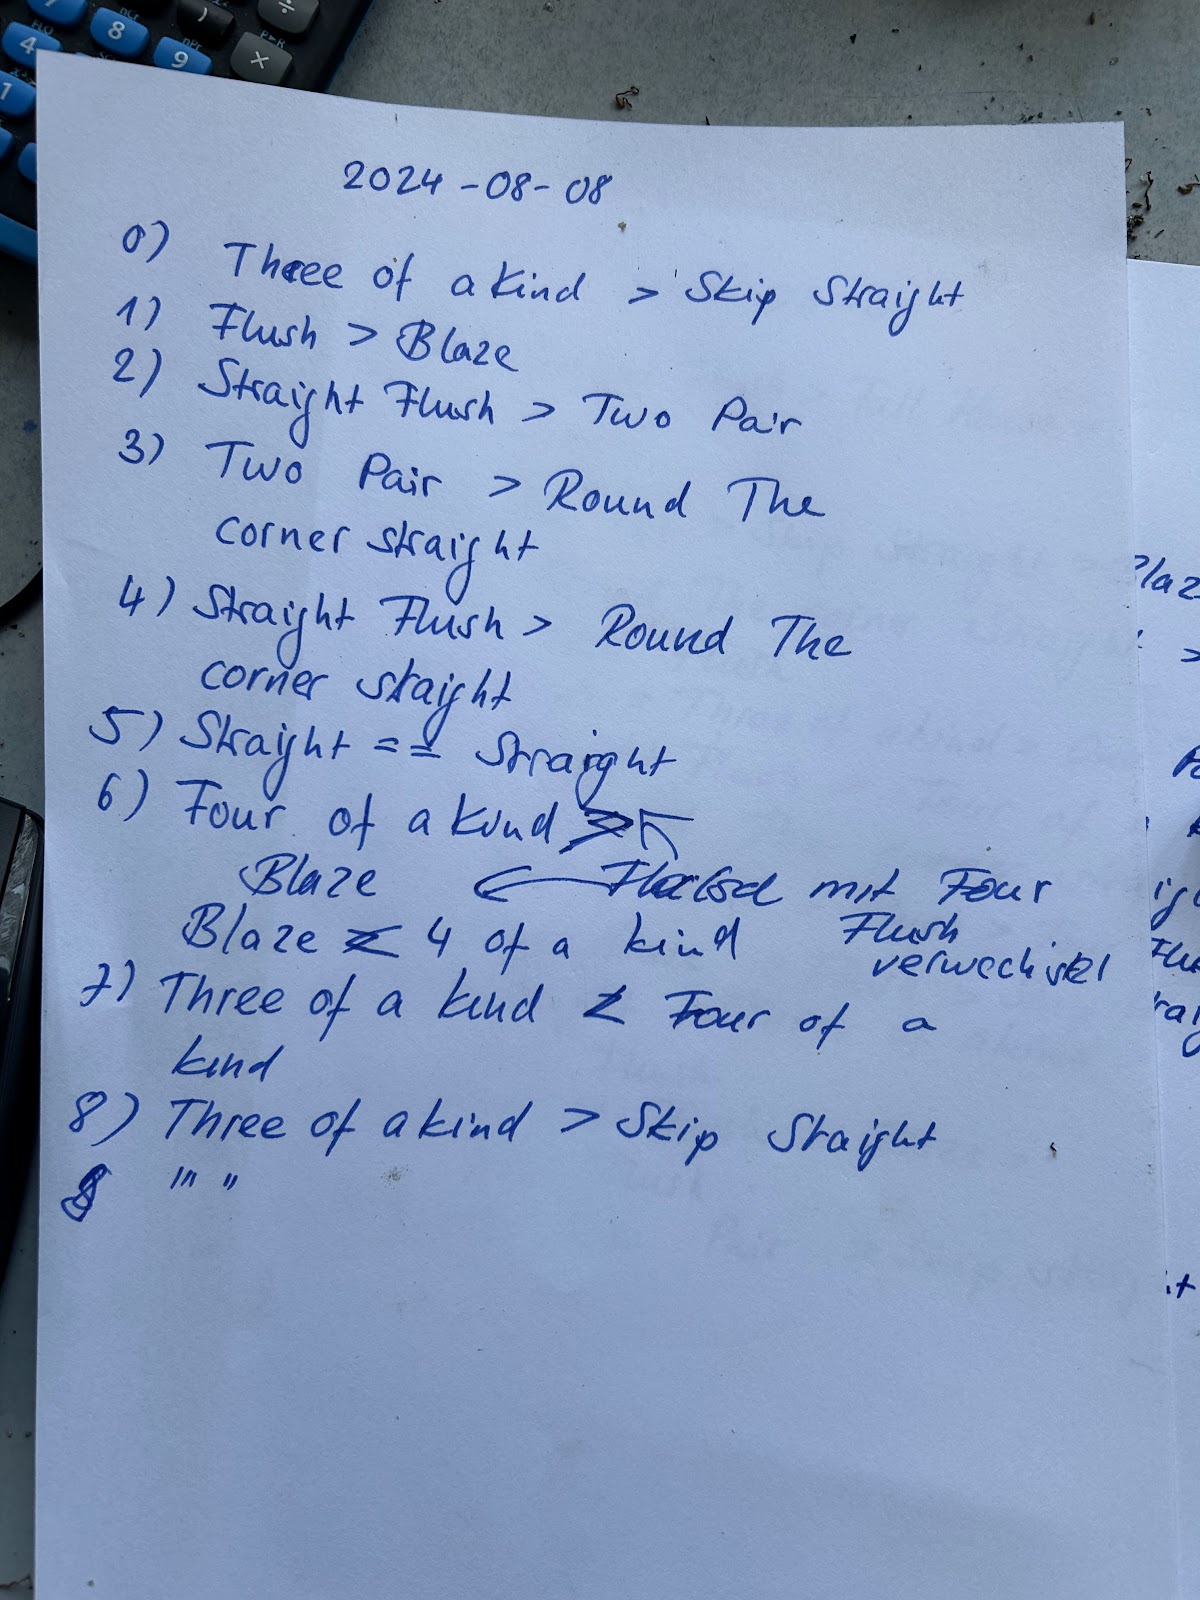 2024-08-08
0) Three of a Kind > Skip Straight
1) Flush > Blaze
2) Straight Flush > Two Pair
3) Two Pair > Round The
corner straight
4) Straight Flush > Round The
corner staight
5) Straight == Straight
6) Four of a kind
Blaze mit Four
Blaze < 4 of a kind Flush
verwechselt
7) Three of a kind < Four of a
kind
8) Three of a kind > Skip Staight
"' "
8
9
×
÷
4
1